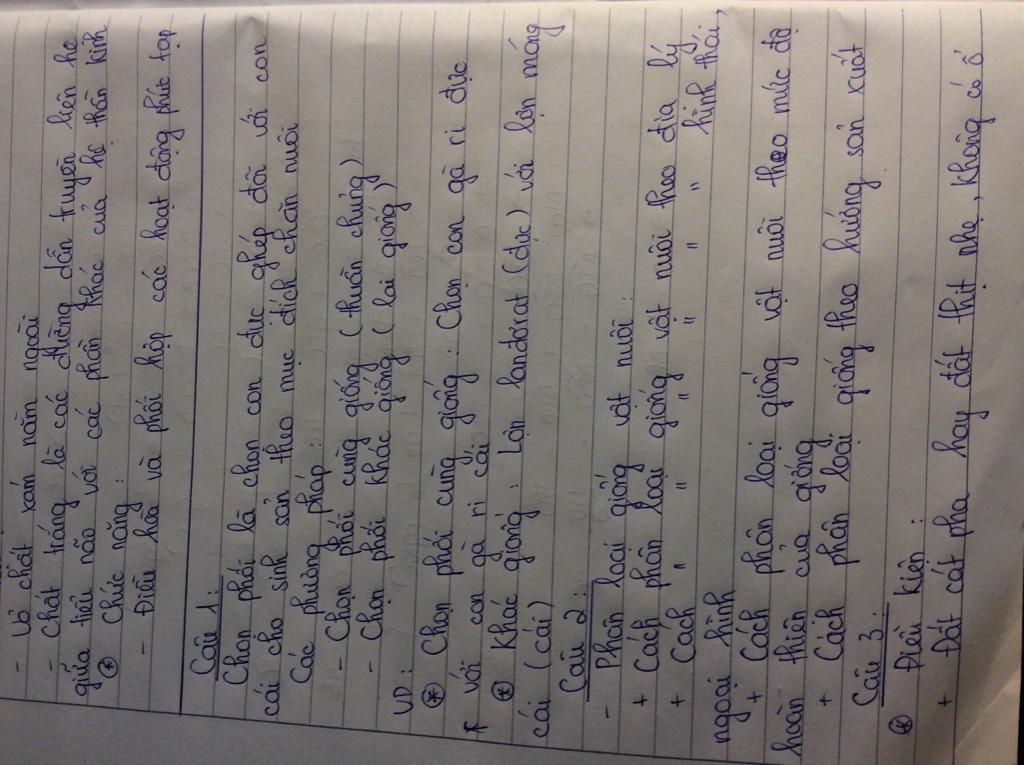 - Vỏ chất xám nằm ngoài
- Chất trắng là các đường dẫn truyền liên hệ
giữa tiểu não với các phần khác của hệ thần kinh
⊛ Chức năng:
- Điều hòa và phối hợp các hoạt động phức tạp
Câu 1:
Chọn phối là chọn con đực ghép đôi với con
cái cho sinh sản theo mục đích chăn nuôi
Các phương pháp:
- Chọn phối cùng giống (thuần chủng)
- Chọn phối khác giống (lai giống)
VD:
⊛ Chọn phối cùng giống: Chọn con gà ri đực
với con gà ri cái
⊛ Khác giống: Lợn landơrat (đực) với lợn móng
cái (cái)
Câu 2:
- Phân loại giống vật nuôi:
+ Cách phân loại giống vật nuôi theo địa lý
+ Cách " " " " " " hình thái,
ngoại hình
+ Cách phân loại giống vật nuôi theo mức độ
hoàn thiện của giống
+ Cách phân loại giống theo hướng sản xuất
Câu 3:
⊛ Điều kiện:
+ Đất cát pha hay đất thịt nhẹ, không có ổ